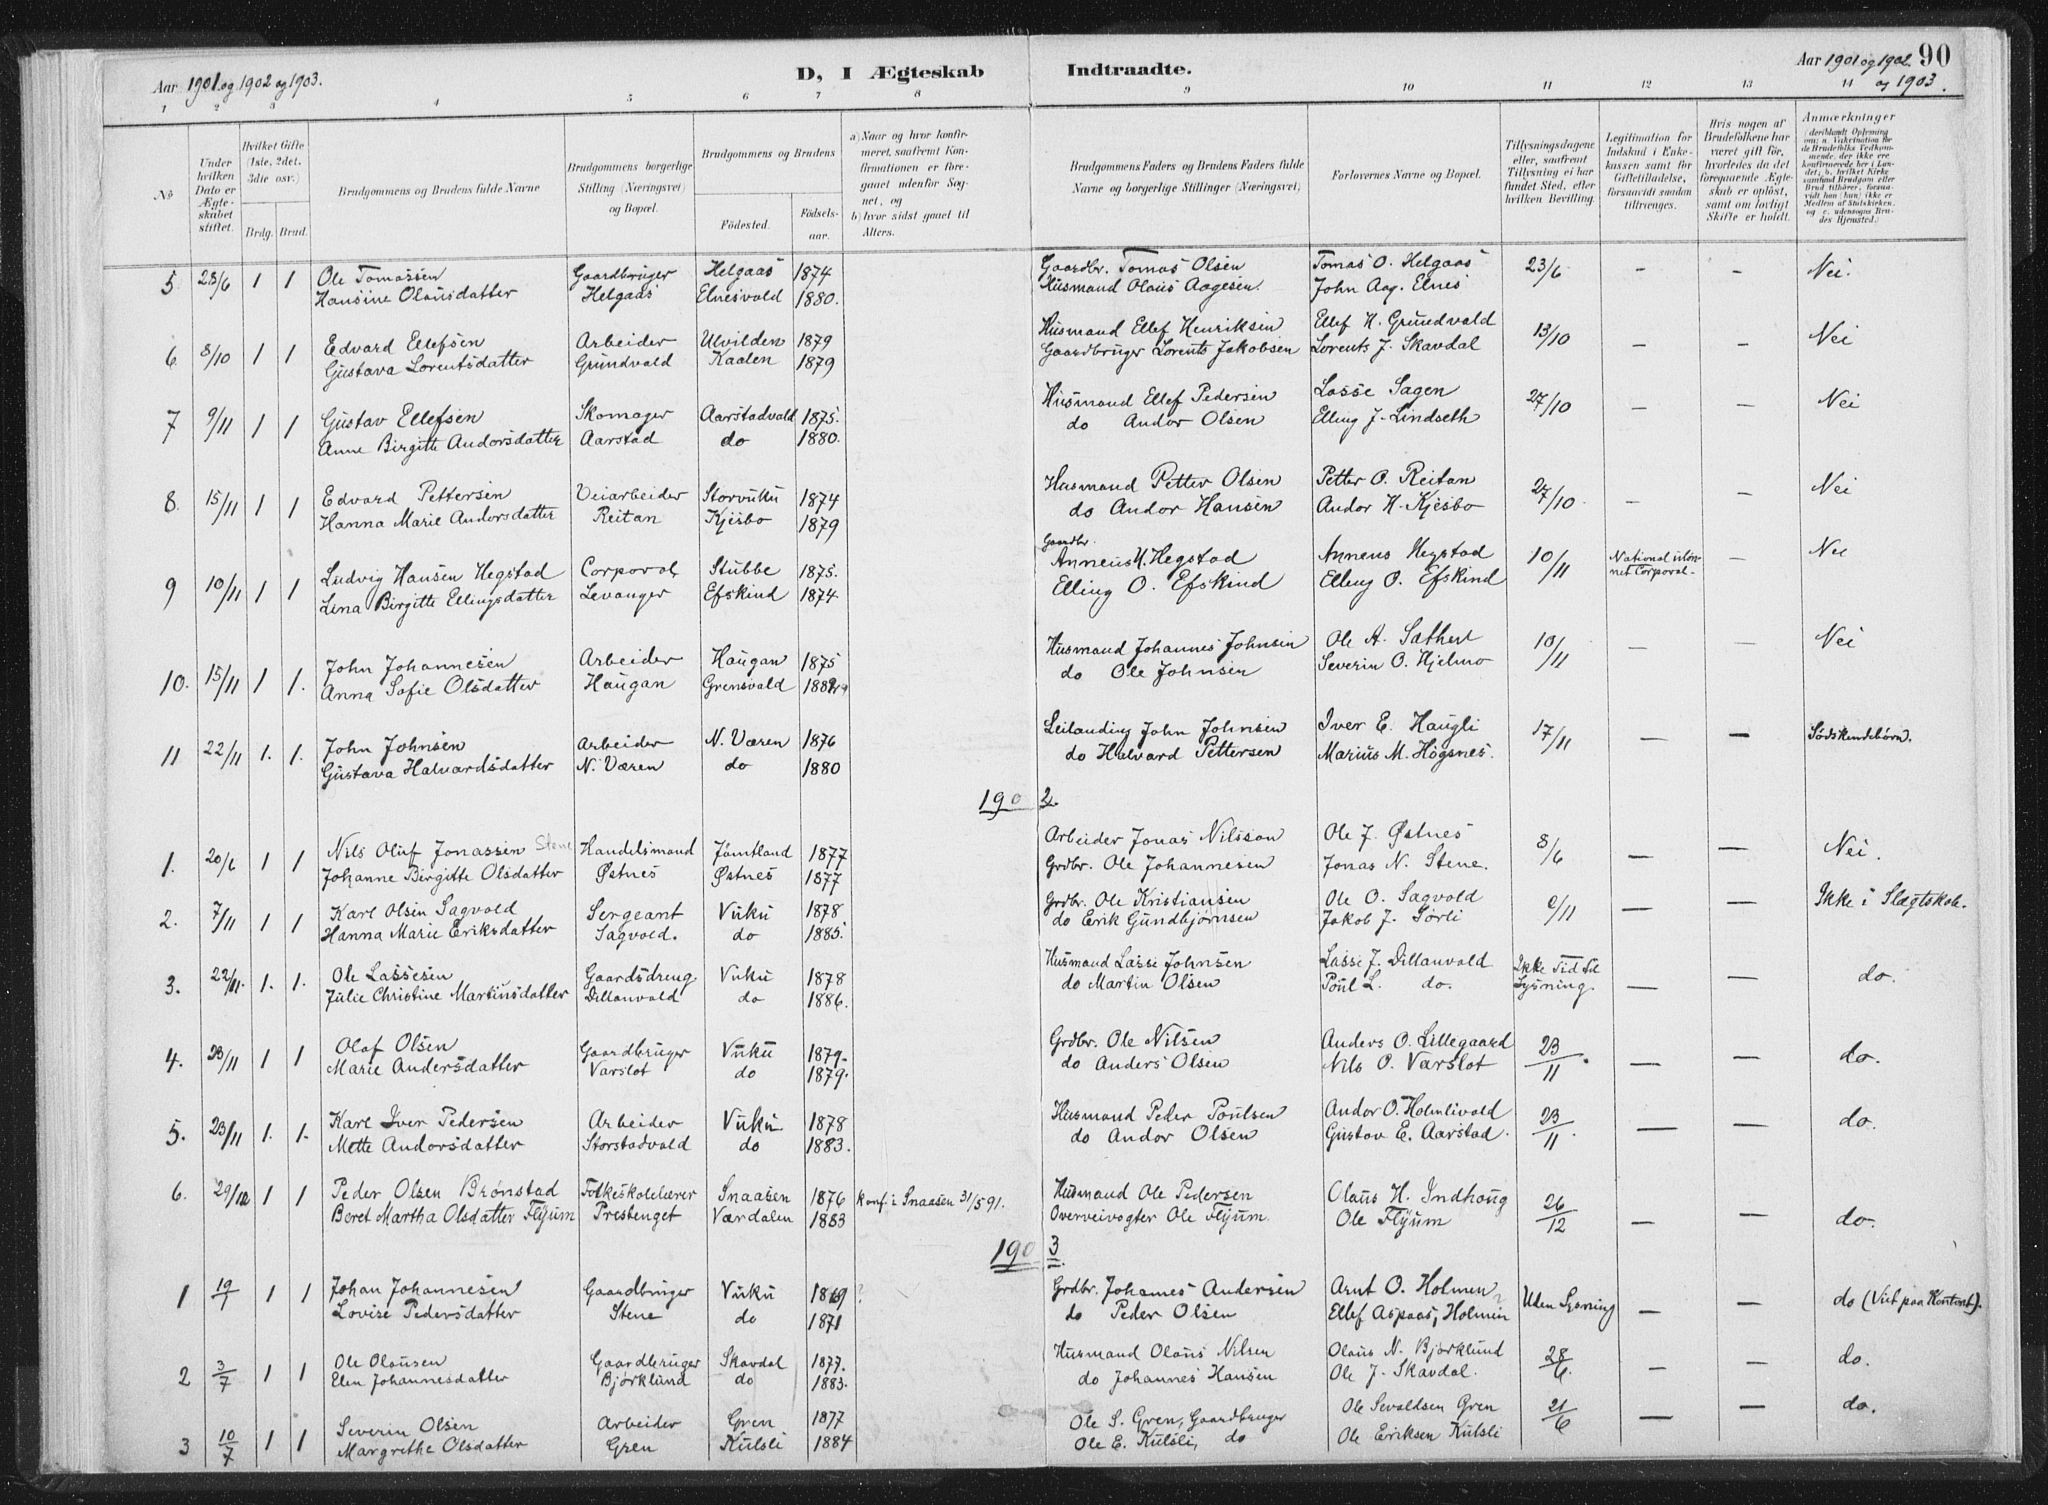 Aar 1901 og 1902 og 1903.
D, I Ægteskab Indtraadte.
Aar 1901 og 1902 og 1903.
90
1 2 3 4 5 6 7 8 9 10 11 12 13 14
No
Under hvilken Dato er Ægteskabet stiftet.
Hvilket Gifte (1ste, 2det, 3die osv.)
Brdg. Brud.
Brudgommens og Brudens fulde Navne
Brudgommens borgerlige Stilling (Næringsvei) og Bopæl.
Brudgommens og Brudens
Fødested.
Fødselsaar.
a) Naar og hvor konfirmeret, saafremt Konfirmationen er foregaaet udenfor Sognet, og
b) hvor sidst gaaet til Alters.
Brudgommens Faders og Brudens Faders fulde Navne og borgerlige Stillinger (Næringsvei)
Forlovernes Navne og Bopæl.
Tillysningsdagene eller, saafremt Tillysning ei har fundet Sted, efter hvilken Bevilling.
Legitimation for Indskud i Enkekassen samt for Giftetilladelse, forsaavidt saadan tiltrænges.
Hvis nogen af Brudefolkene har været gift før, hvorledes da det foregaaende Ægteskab er opløst, samt om lovligt Skifte er holdt.
Anmærkninger
5. 23/6 1 1 Ole Tomassen Gaardbruger Helgaas 1874 Gaardbr. Tomas Olsen Tomas O. Helgaas 23/6 - - Nei.
Hansine Olausdatter Helgaas Elnesvald 1880. Husmand Olaus Aagesen. John Aag. Elnes
6. 8/10 1 1 Edvard Ellefsen Arbeider Ulvilden 1879 Husmand Ellef Henriksen Ellef H. Grundvald 13/10 - - Nei
Gustava Lorentsdatter Grundvald Kaalen 1879 Gaardbruger Lorents Jakobsen Lorents J. Skavdal
7 9/11 1 1 Gustav Ellefsen Skomager Aarstadvald 1875. Husmand Ellef Pedersen Lasse Sagen 27/10 - - Nei
Anne Birgitte Andorsdatter Aarstad do 1880. do Andor Olsen Elling J. Lindseth
8. 15/11 1 1 Edvard Pettersen Veiarbeider Storvuku 1874 Husmand Petter Olsen Petter O. Reitan 27/10 - - Nei
Hanna Marie Andorsdatter Reitan Kjesbo 1879 do Andor Hansen Andor H. Kjesbo
9 10/11 1 1 Ludvig Hansen Hegstad Corporal Stubbe 1875. Gaardbr. Anneus H. Hegstad Anneus Hegstad 10/11 National utønnet Corporal - - Nei
Lina Birgitte Ellingsdatter Levanger Efskind 1874. Elling O. Efskind Elling O. Efskind
10. 15/11 1 1. John Johannesen Arbeider Haugan 1875 Husmand Johannes Johnsen Ole A. Sæther 10/11 - - Nei
Anna Sofie Olsdatter Haugan Grensvald do Ole Johnsen Severin O. Hjelmo
11 22/11 1. 1. John Johnsen Arbeider N. Væren 1876 Leilanding John Johnsen Iver E. Haugli 17/11 - - Sødskendebørn.
Gustava Halvardsdatter N. Væren do 1880 do Halvard Pettersen Marius M. Högsnes.
1902.
1. 20/6 1 1 Nils Oluf Jonassen Stene Handelsmand Jämtland 1877 Arbeider Jonas Nilsson Ole J. Østnes 8/6 - - Nei.
Johanne Birgitte Olsdatter Østnes Østnes 1877 Grdbr. Ole Johannesen Jonas N. Stene.
2. 7/11 1 1 Karl Olsen Sagvold Sergeant Vuku 1878 Grdbr. Ole Kristiansen Ole O. Sagvold /11 - - Ikke i Slægtskab.
Hanna Marie Eriksdatter Sagvold. do 1885. do Erik Gundbjørnsen Jakob J. Sørli
3. 22/11. 1. 1. Ole Lassesen Gaardsdreng Vuku 1878 Husmand Lasse Johnsen Lasse J. Dillanvald Ikke Tid til Lysning. - - do.
Julie Christine Martinsdatter Dillanvald do 1886. do Martin Olsen Poul L. do.
4. 23/11 1 1 Olaf Olsen Gaardbruger Vuku 1879. Grdbr. Ole Nilsen Anders O. Lillegaard 23/11. - - do.
Marie Andersdatter Varslot do 1879. do Anders Olsen Nils O. Varslot
5. 23/11 1. 1. Karl Iver Pedersen Arbeider Vuku 1878 Husmand Peder Poulsen Andor O. Holmlivald 23/11. - - do.
Mette Andorsdatter Storstadvald do 1883. do Andor Olsen Gustav E. Aarstad.
6. 29/12 1 1 Peder Olsen Brønstad Folkeskolelærer Snaasen 1876 konf. i Snaasen 31/5 91. Husmand Ole Pedersen Olaus H. Indhaug 26/12 - - do.
Beret Martha Olsdatter Flyum Prestenget Værdalen 1883 Overveivogter Ole Flyum. Ole Flyum
1903
1 19/1 1 1 Johan Johannesen Gaardbruger Vuku 1869 ? Grdbr. Johannes Andersen Arnt O. Holmen Uden Lysning - - do (Viet paa Kontoret).
Lovise Pedersdatter Stene do 1871 do Peder Olsen Ellef Aspaas, Holmen
2 3/7 1 1 Ole Olausen Gaardbruger Skavdal 1877. Husmand Olaus Nilsen Olaus N. Bjørklund 28/6. - - do.
Elen Johannesdatter Bjørklund do 1883. do Johannes Hansen Ole J. Skavdal.
3 10/7 1 1 Severin Olsen Arbeider Gren 1877 Ole S. Gren, Gaardbruger Ole Sevaldsen Gren 21/6 - - do.
Margrethe Olsdatter Gren Kulsli 1884 Ole E. Kulsli, do Ole Eriksen Kulsli